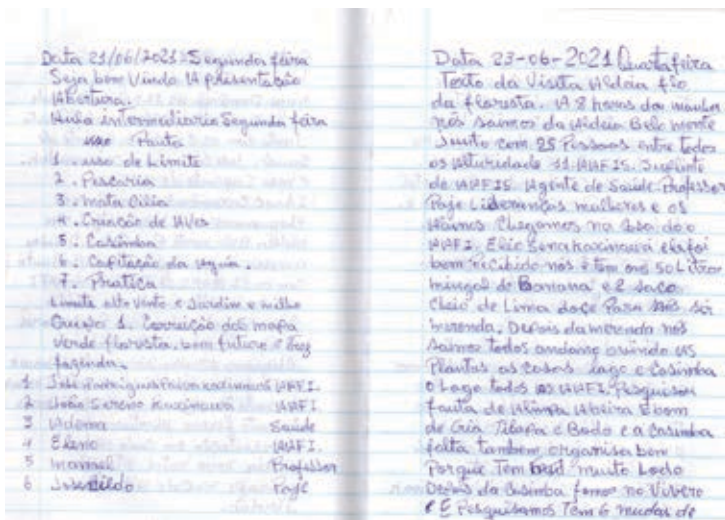 Data 21/06/2021 Segunda feira
Seja bem Vindo A presentação
Abertura.
Aula intermediario Segunda feira
uso Pauta
1. uso de Limite
2. Pescaria
3. mata Cilia
4. Criação de Aves
5. Casimba
6. Capitação da agua.
7. Pratica
Limite alto vento e Jardim e milho
Grupo 1. Correição do mapa
verde floresta, bom futuro e
fazenda.
1 José Kaxinawá AAFI.
2 João Sereno Kaxinawá AAFI
3 Adema Saúde
4 Eleno AAFI.
5 manoel Professor
6 Josenildo Pajé
Data 23-06-2021 Quarta feira
Texto da Visita Aldeia flo
da floresta. A 8 horas da manha
nós saimos da Aldeia Belo monte
Junto com 25 Pessoas entre todos
os Alturidade 11 AAFIS. Suplente
de AAFIS Agente de Saude Professor
Paje Lideranças mulheres e os
Alunos Chegamos na Casa do
AAFI. Kaxinawá ele foi
bem Recibido nós e tem 50 Litro
mingal de Banana e 2 saco
Cheio de Lima doce Para nós
merenda, Depois da merenda nós
Saimos todos andano as
Plantas as casas lago e Casimba
O Lago todos AAFI. Pesquisou
fauta de Alimpa Abeira e bom
de Cria Tilapa e Bodo e a Casimba
falta tambem organisa bem
Porque Tem muito Lodo
Depois da Casimba fomos no Vivero
E Pesquisamos Tem 6 mudas de